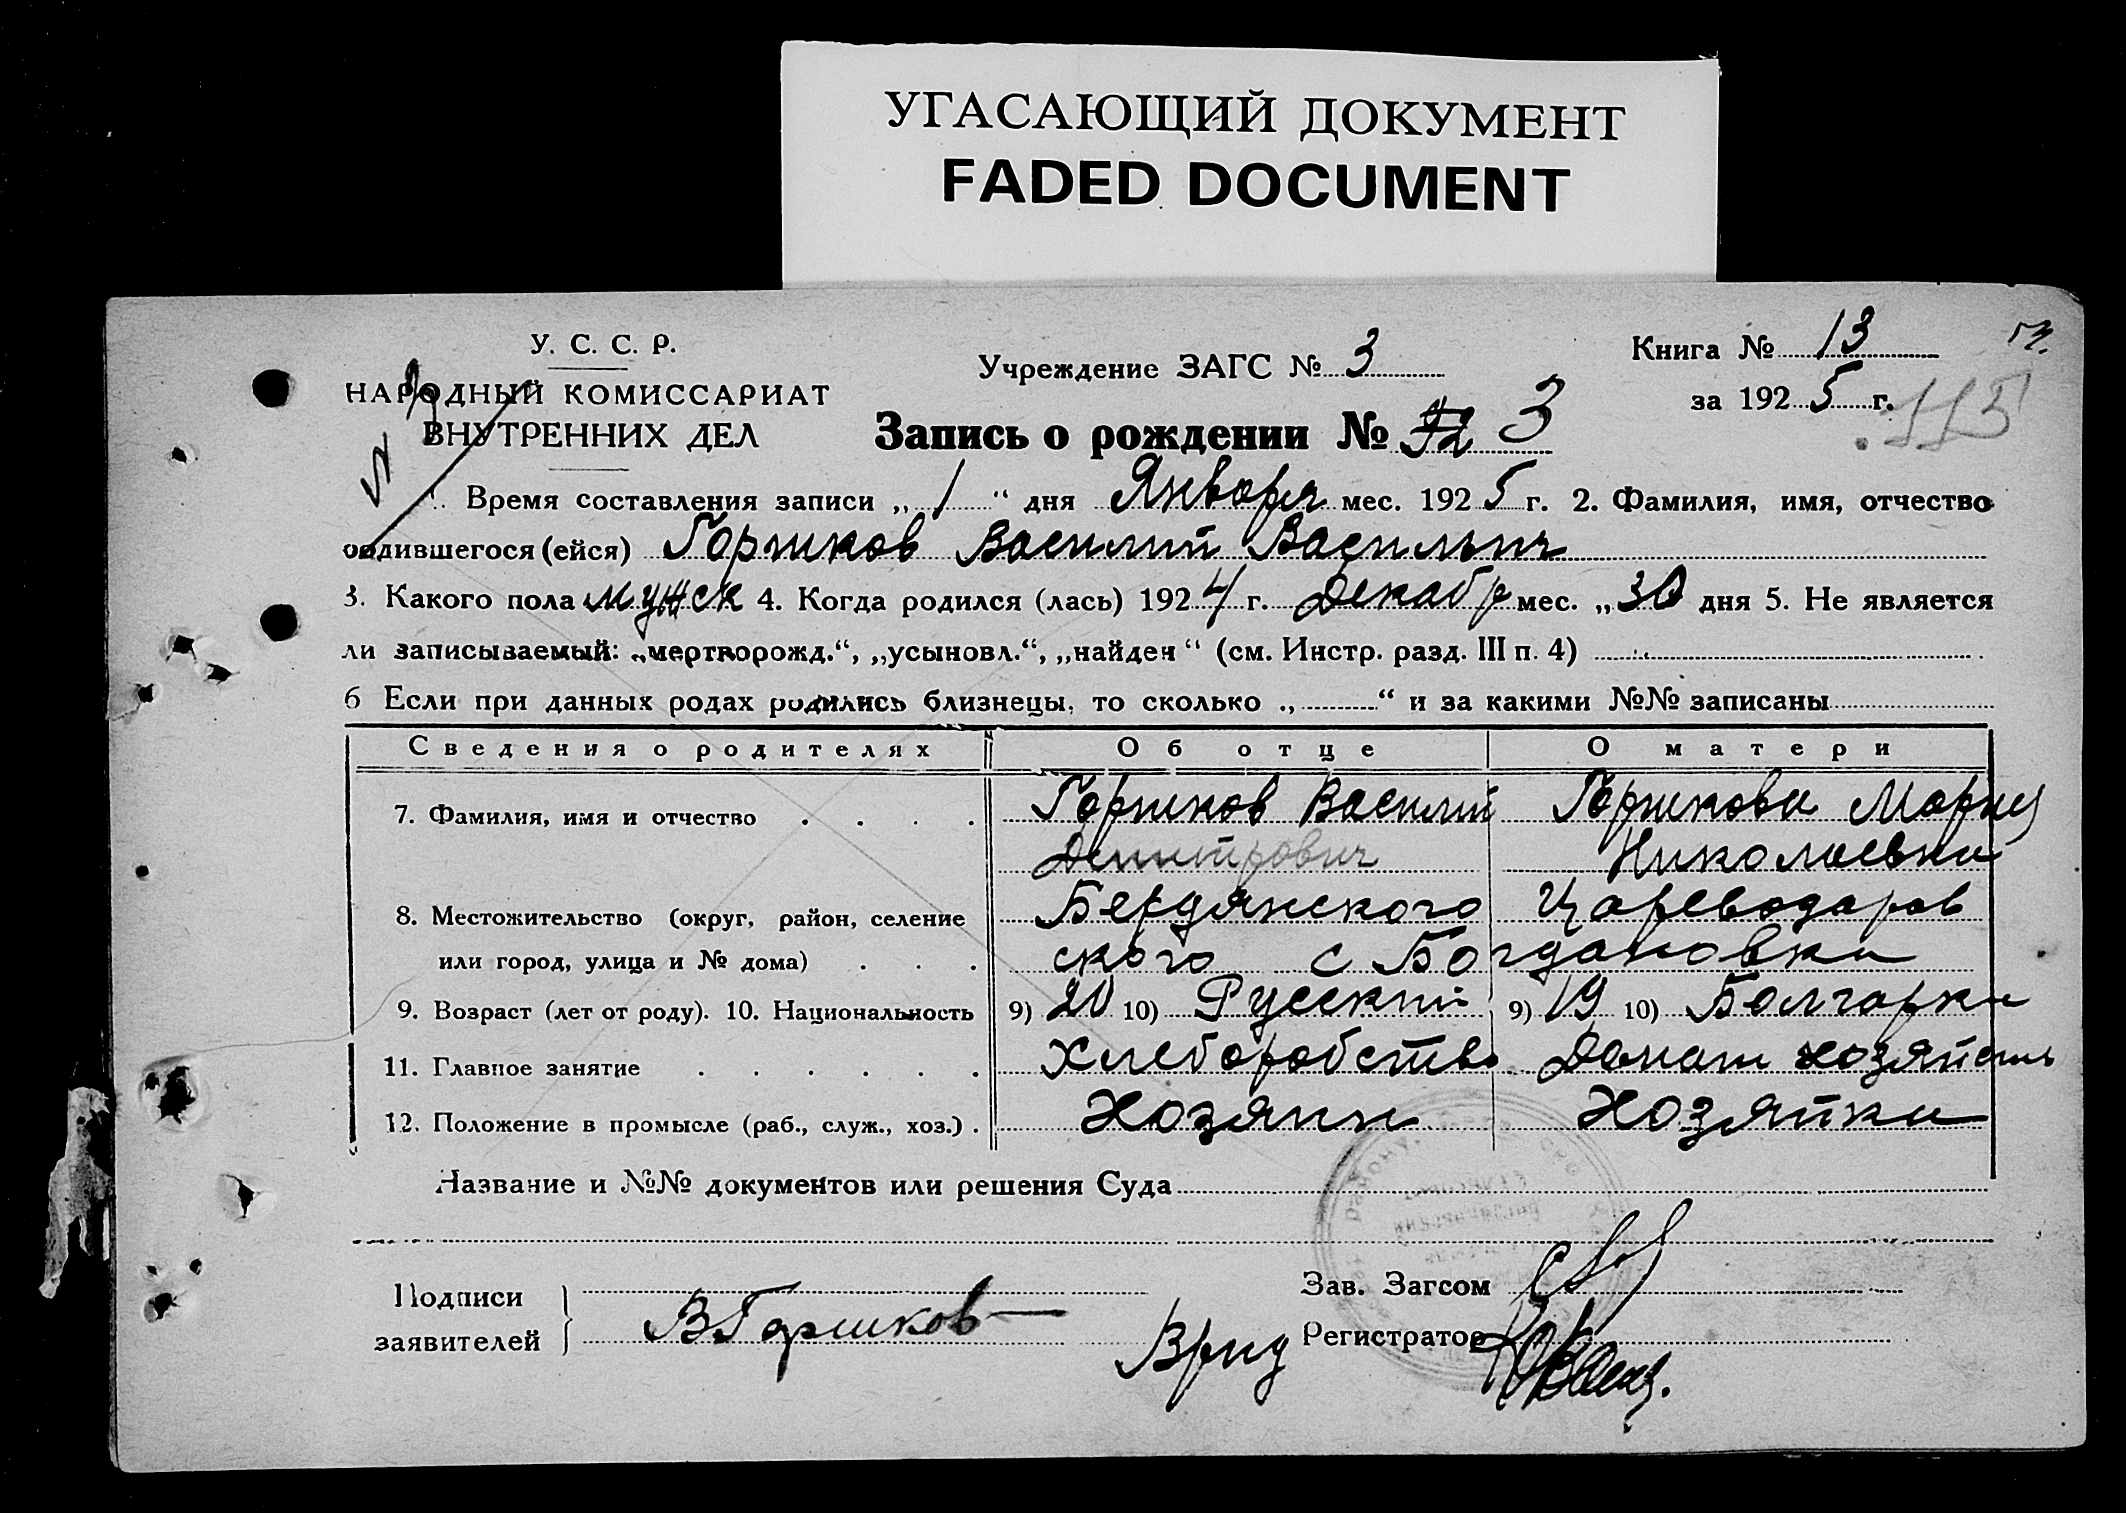 УГАСАЮЩИЙ ДОКУМЕНТ
FADED DOCUMENT
У. С. С. Р.
НАРОДНЫЙ КОМИССАРИАТ
ВНУТРЕННИХ ДЕЛ
Учреждение ЗАГС № 3
Книга № 13
за 1925 г.
115
Запись о рождении № 3
Время составления записи „1“ дня Января мес. 1925 г. 2. Фамилия, имя, отчество
родившегося (ейся) Горшков Василий Васильич
3. Какого пола мужск 4. Когда родился (лась) 1924 г. Декабр мес. „30 дня 5. Не является
ли записываемый: „мертворожд.“, „усыновл.“, „найден“ (см. Инстр. разд. III п. 4)
6 Если при данных родах родились близнецы, то сколько „ “ и за какими №№ записаны
Сведения о родителях Об отце О матери
7. Фамилия, имя и отчество Горшков Василий Горшкова Мария
Дмитрович Николаевна
8. Местожительство (округ, район, селение Бердянского Цареводаров
или город, улица и № дома) ского с Богдановка
9. Возраст (лет от роду). 10. Национальность 9) 20 10) Русский 9) 19 10) Болгарка
11. Главное занятие Хлеборобство Домаш хозяйств
12. Положение в промысле (раб., служ., хоз.) Хозяин Хозяйка
Название и №№ документов или решения Суда
Подписи
заявителей
ВГоршков
Зав. Загсом
Врид Регистратор